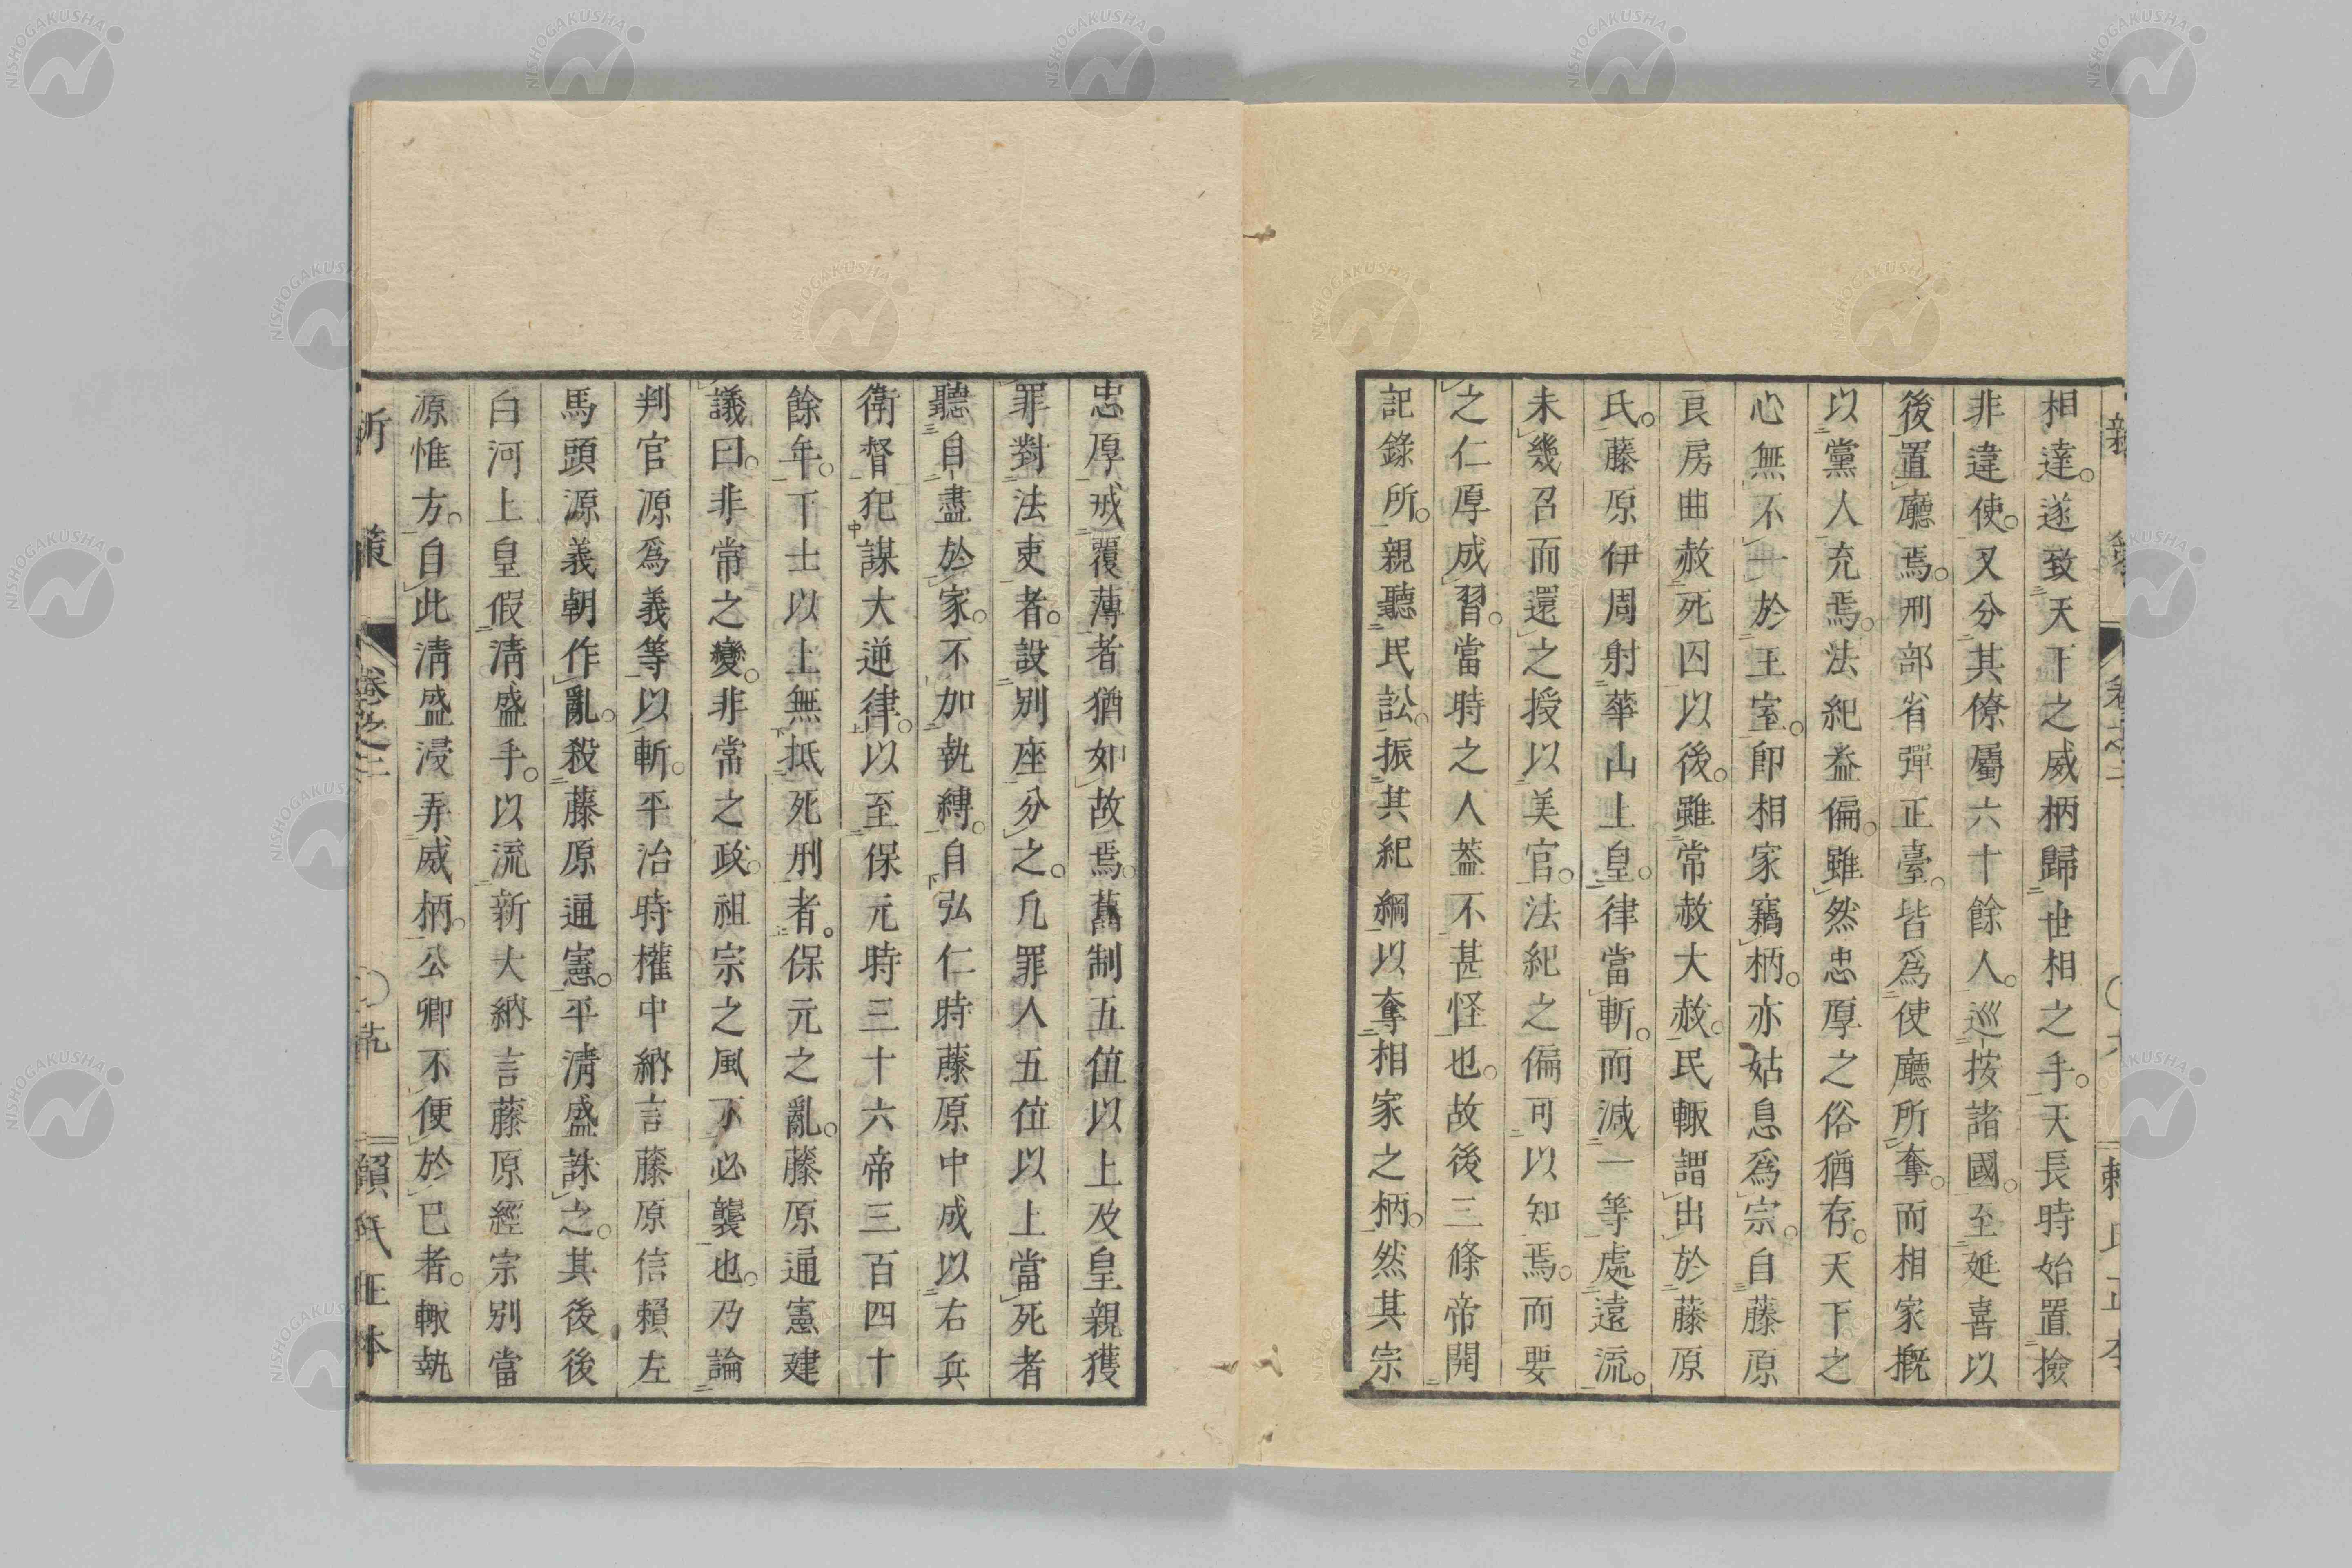 相達。遂致天下之威柄歸世相之手。天長時始置撿
非違使。又分其僚屬六十餘人。巡按諸國。至延喜以
後置廳焉。刑部省彈正臺。皆爲使廳所奪。而相家摡
以黨人充焉。法紀益偏。雖然忠厚之俗猶存。天下之
心無不一於王室。卽相家竊柄。亦姑息爲宗。自藤原
良房曲赦死囚以後。雖常赦大赦。民輙謂出於藤原
氏。藤原伊周射華山上皇。律當斬。而減一等處遠流。
未幾召而還之授以美官。法紀之偏可以知焉。而要
之仁厚成習。當時之人葢不甚怪也。故後三條帝開
記錄所。親聽民訟。振其紀綱以奪相家之柄。然其宗
忠厚戒覆薄者猶如故焉。舊制五位以上及皇親獲
罪對法吏者。設別座分之。凡罪人五位以上當死者
聽自盡於家。不加執縛。自弘仁時藤原中成以右兵
衛督犯謀大逆律。以至保元時三十六帝三百四十
餘年。下士以上無抵死刑者。保元之亂。藤原通憲建
議曰。非常之變。非常之政。祖宗之風不必襲也。乃論
判官源爲義等以斬。平治時權中納言藤原信賴左
馬頭源義朝作亂。殺藤原通憲。平淸盛誅之。其後後
白河上皇假淸盛手。以流新大納言藤原經宗別當
源惟方。自此淸盛浸弄威柄。公卿不便於已者。輙執
新策
卷之二
賴氏正本
NISHOGAKUSHA